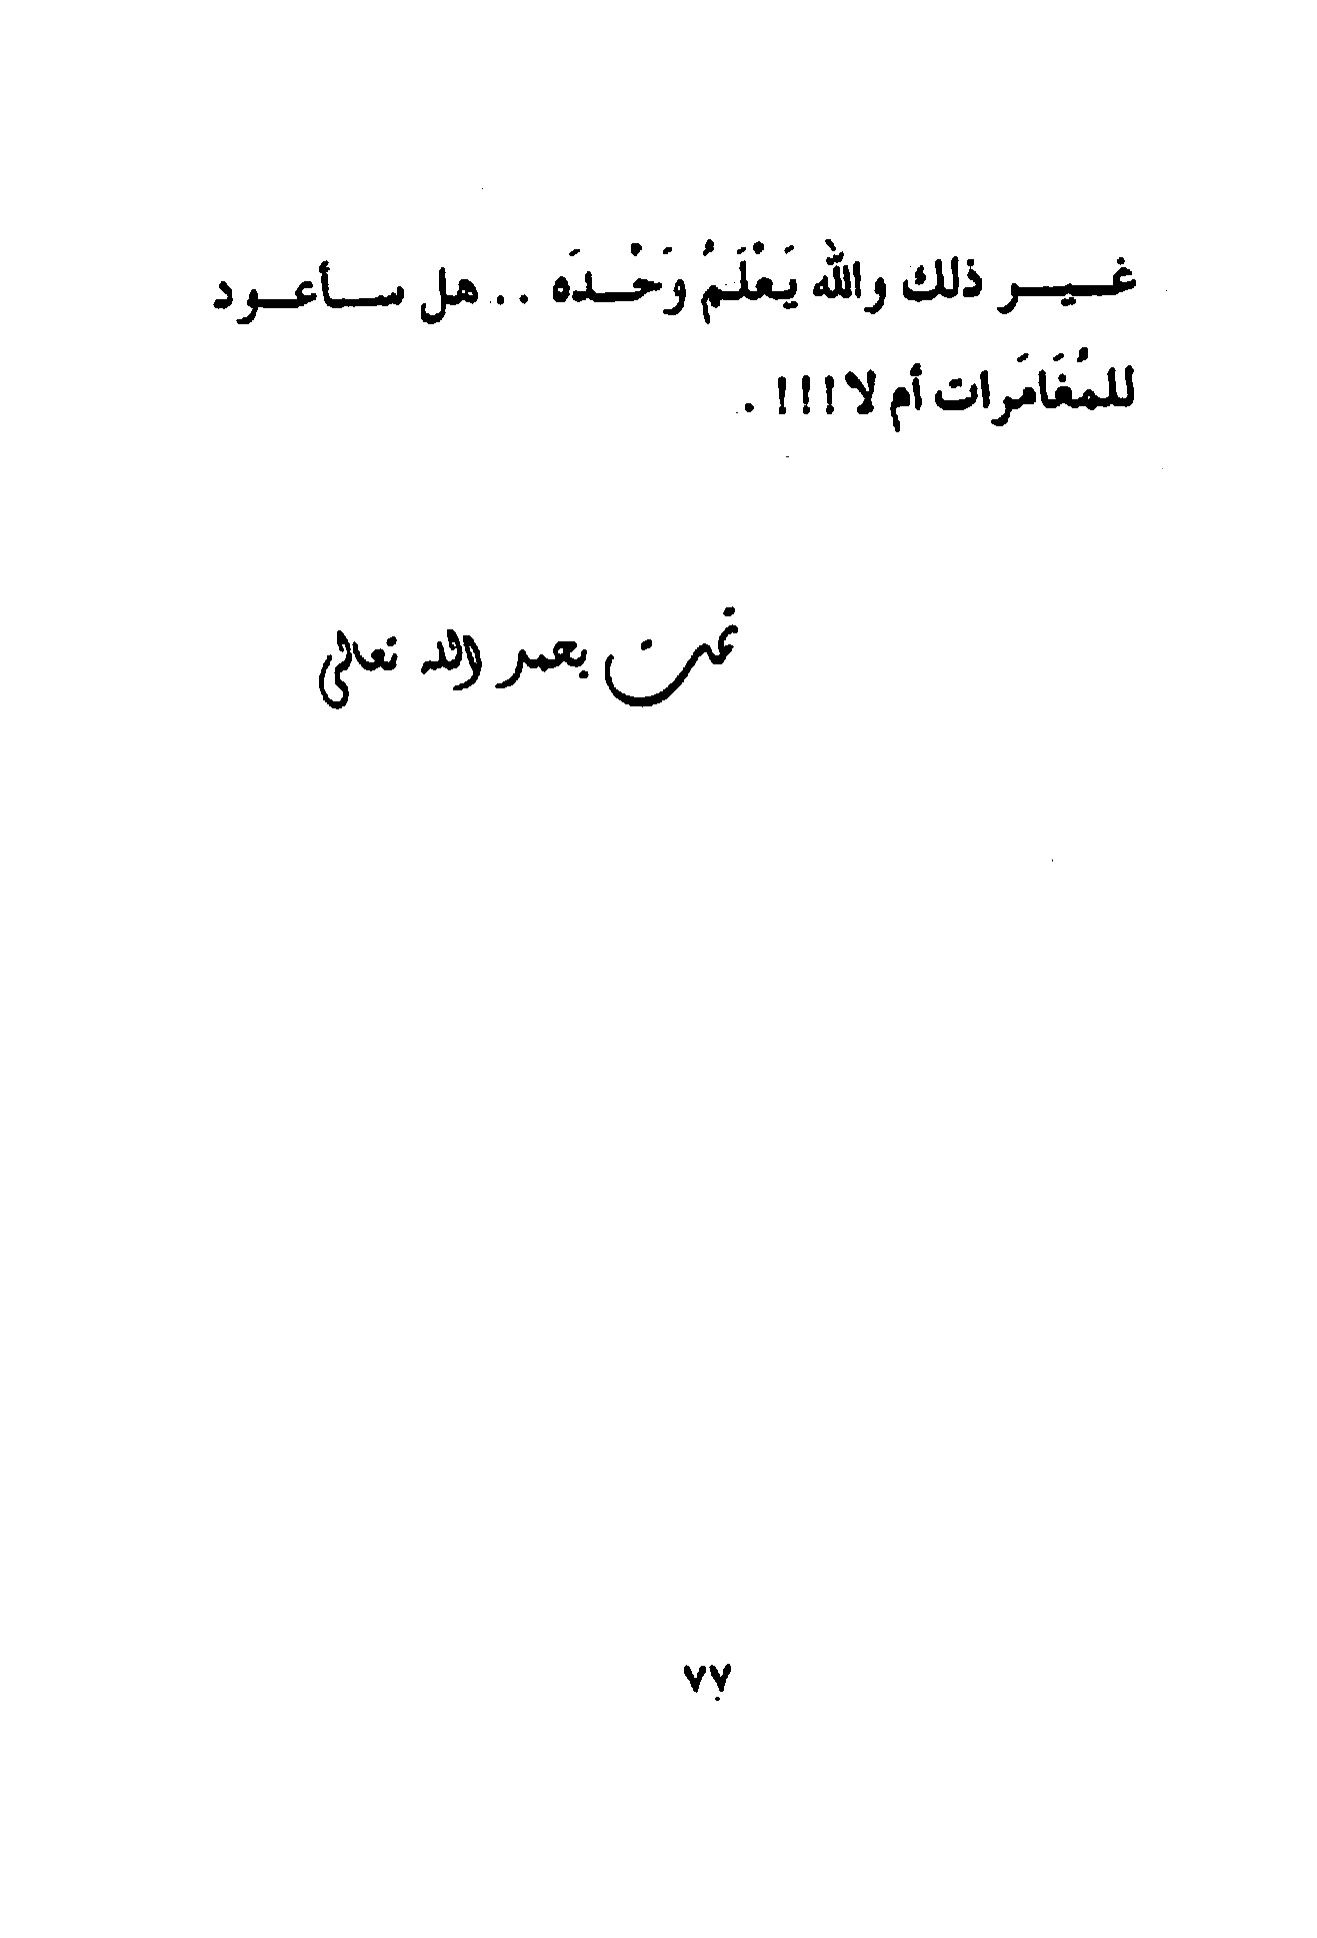 غـــيـــر ذلك والله يَعْلَمُ وَحْـــدَه .. هل ســـأعـــود
للمُغَامَرات أم لا!!! .
تمت بحمد الله تعالى
٧٧